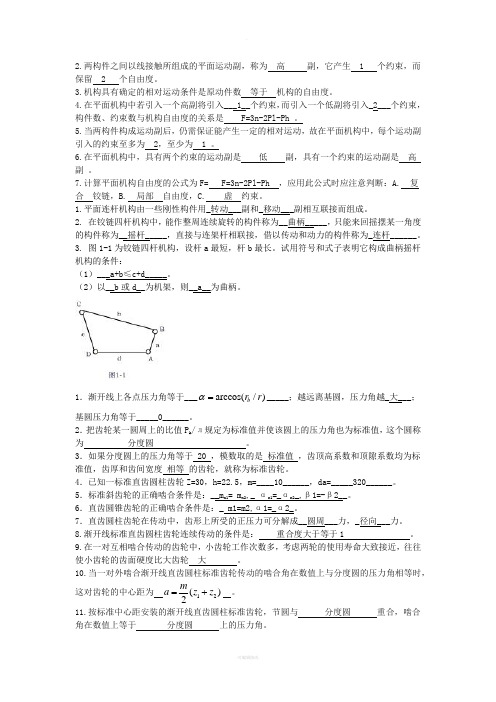 2.两构件之间以线接触所组成的平面运动副，称为 高 副，它产生 1 个约束，而
保留 2 个自由度。
3.机构具有确定的相对运动条件是原动件数 等于 机构的自由度。
4.在平面机构中若引入一个高副将引入___1__个约束,而引入一个低副将引入_2___个约束,
构件数、约束数与机构自由度的关系是 F=3n-2Pl-Ph 。
5.当两构件构成运动副后，仍需保证能产生一定的相对运动，故在平面机构中，每个运动副
引入的约束至多为 2，至少为 1 。
6.在平面机构中，具有两个约束的运动副是 低 副，具有一个约束的运动副是 高
副 。
7.计算平面机构自由度的公式为F= F=3n-2Pl-Ph ，应用此公式时应注意判断：A. 复
合 铰链，B. 局部 自由度，C. 虚 约束。
1.平面连杆机构由一些刚性构件用_转动___副和_移动___副相互联接而组成。
2. 在铰链四杆机构中,能作整周连续旋转的构件称为__曲柄_____,只能来回摇摆某一角度
的构件称为__摇杆_____,直接与连架杆相联接，借以传动和动力的构件称为_连杆______。
3. 图1-1为铰链四杆机构，设杆a最短，杆b最长。试用符号和式子表明它构成曲柄摇杆
机构的条件：
（1）___a+b≤c+d_____。
（2）以__b或d__为机架，则__a__为曲柄。
C
b
B
c
a
D
d
A
图1-1
1．渐开线上各点压力角等于___α=arccos(r_b/r)_____；越远离基圆，压力角越_大___；
基圆压力角等于_____0______。
2．把齿轮某一圆周上的比值P_k/π规定为标准值并使该圆上的压力角也为标准值，这个圆称
为 分度圆 。
3．如果分度圆上的压力角等于 20 ，模数取的是 标准值 ，齿顶高系数和顶隙系数均为标
准值，齿厚和齿间宽度 相等 的齿轮，就称为标准齿轮。
4．已知一标准直齿圆柱齿轮Z=30，h=22.5，m=____10______，da=_____320______。
5．标准斜齿轮的正确啮合条件是：__m_n1= m_n2,_ α_n1=_α_n2_,β1=-β2__。
6．直齿圆锥齿轮的正确啮合条件是：_ m1=m2,α1=_α2_。
7．直齿圆柱齿轮在传动中，齿形上所受的正压力可分解成__圆周___力,_径向___力。
8.渐开线标准直齿圆柱齿轮连续传动的条件是： 重合度大于等于1 。
9.在一对互相啮合传动的齿轮中，小齿轮工作次数多，考虑两轮的使用寿命大致接近，往往
使小齿轮的齿面硬度比大齿轮 大 。
10.当一对外啮合渐开线直齿圆柱标准齿轮传动的啮合角在数值上与分度圆的压力角相等时，
这对齿轮的中心距为 a=m/2(z₁+z₂) 。
11.按标准中心距安装的渐开线直齿圆柱标准齿轮，节圆与 分度圆 重合，啮合
角在数值上等于 分度圆 上的压力角。